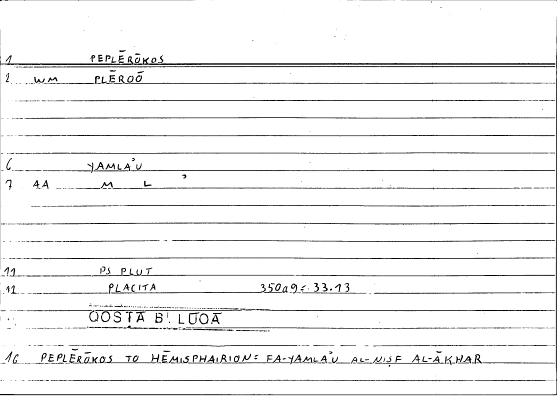 1 PEPLĒRŌKOS
2 WM PLĒROŌ
6 YAMLAʾU
7 AA M L ʾ
11 PS PLUT
12 PLACITA 350a9 = 33.13
QOSTĀ B. LŪQĀ
16 PEPLĒRŌKOS TO HĒMISPHAIRION = FA-YAMLAʾU AL-NIṢF AL-ĀKHAR